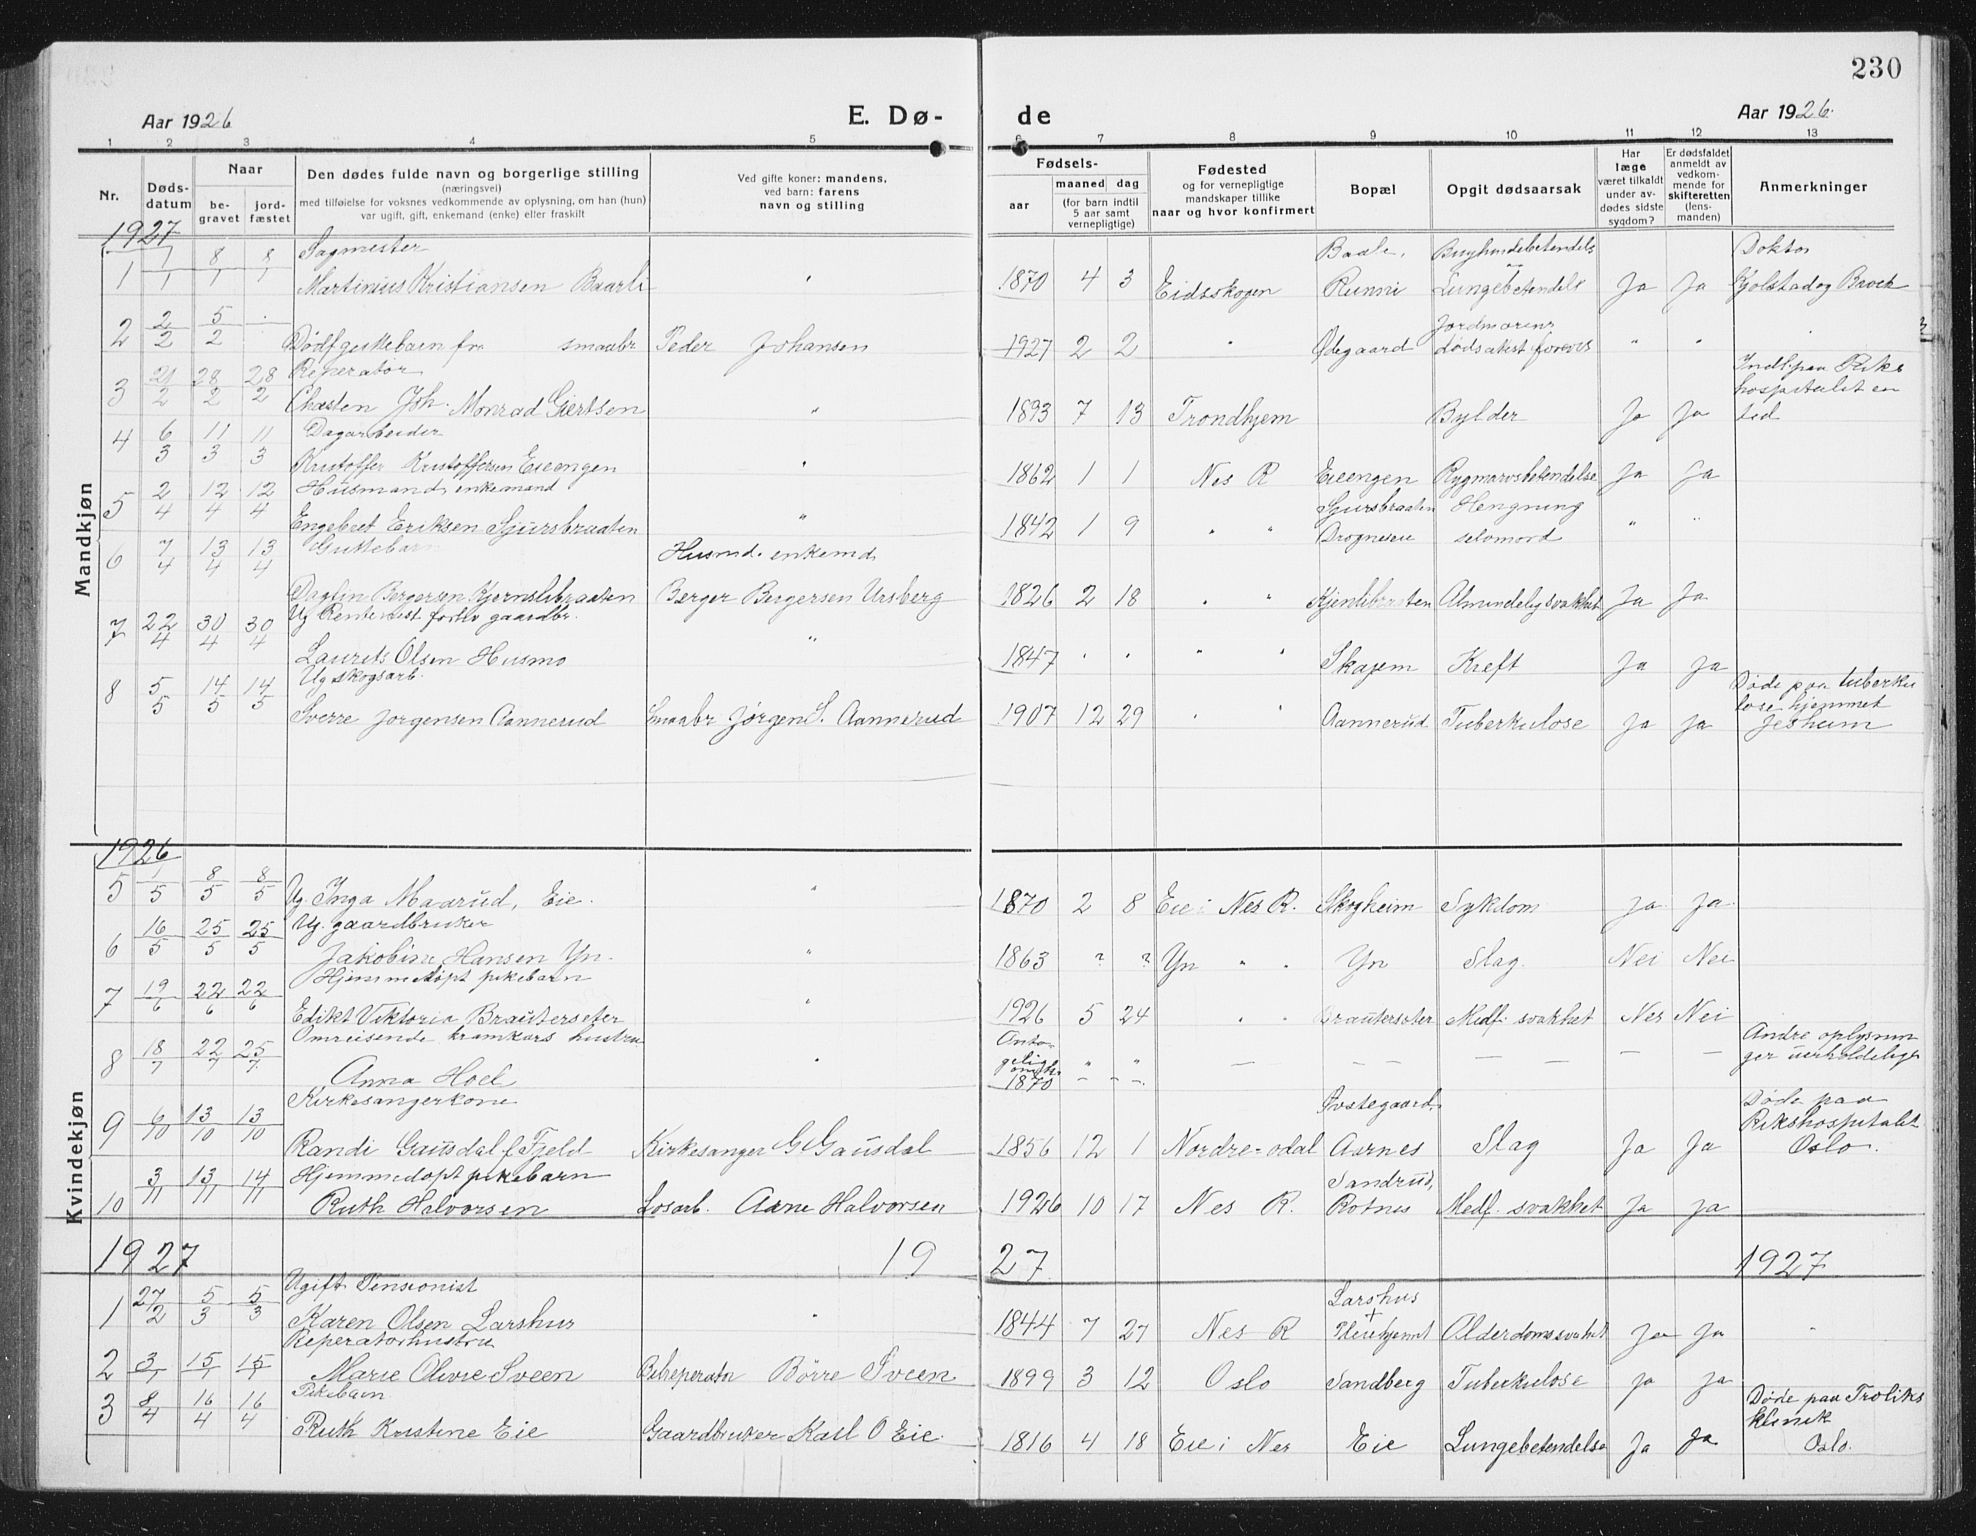 230
Aar 1926
E. Dø-
de
Aar 1926.
1 2 3 4 5 6 7 8 9 10 11 12 13
Nr.
Døds-
datum
Naar
be-
gravet
jord-
fæstet
Den dødes fulde navn og borgerlige stilling
(næringsvei)
med tilføielse for voksnes vedkommende av oplysning, om han (hun)
var ugift, gift, enkemand (enke) eller fraskilt
Ved gifte koner: mandens,
ved barn: farens
navn og stilling
Fødsels-
aar
maaned dag
(for barn indtil
5 aar samt
vernepligtige)
Fødested
og for vernepligtige
mandskaper tillike
naar og hvor konfirmert
Bopæl
Opgit dødsaarsak
Har
læge
været tilkaldt
under av-
dødes sidste
sygdom?
Er dødsfaldet
anmeldt av
vedkom-
mende for
skifteretten
(lens-
manden)
Anmerkninger
Mandkjøn
1927
Sagmester Baale, Doktor
1 1/1 8/1 8/1 Martinius Kristiansen Baarli " 1870 4 3 Eidsskogen Runni Lungebetendels Ja Ja Kjolstad og Broch
Jordmorens
2 2/2 5/2 Dødf gutebarn fra smaabr Peder Johansen 1927 2 2 " Ødegaard dødsatest forevis " "
Reperatør Indl. paa Riks
hospitalet en
3 21/2 28/2 28/2 Chasten Joh. Monrad Giertsen " 1893 7 13 Trondhjem Bylder Ja Ja tid
Dagarbeider
4 6/3 11/3 11/3 Kristoffer Kristoffersen Eieengen " 1862 1 1 Nes R Eieengen Rygmarvsbetendelse Ja Ja
Husmand enkemand Sjursbraaten Hengning
5 2/4 12/4 12/4 Engebret Eriksen Sjursbraaten " 1842 1 9 " " Drogneseie selvmord " "
Guttebarn Husmd. enkemd
6 7/4 13/4 13/4 Bergersen Berger Bergersen Ursberg 1826 2 18 " " Almindelig svakhet Ja Ja
Ug Rentenist forhv gaardbr.
7 22/4 30/4 30/4 Laurets Olsen Husmo " 1847 " " " " Skajem Kreft Ja Ja
Ug skogsarb. Døde paa tuberku
lose hjemmet
8 5/5 14/5 14/5 Sverre Jørgensen Aannerud Smaabr Jørgen S. Aannerud 1907 12 29 " " Aannerud Tuberkulose Ja Ja Jesheim
Kvindekjøn
1926
5 1/5 8/5 8/5 Ug. Inga Maarud, Eie. " 1870 2 8 Eie i Nes R. Skogheim Sykdom Ja Ja
Ug. gaardbruker
6 16/5 25/5 25/5 Jakobine Hansen Yn. " 1863 ? ? Yn " " Yn Slag. Nei Nei
Hjemmedøpt pikebarn
7 19/6 22/6 22/6 Edikt Viktoria Brautersæter " 1926 5 24 " " Brautersæter Medf. svakhet Nei Nei
Omreisende kramkars hustru Anta-
gelig Andre oplysnin
8 18/7 22/7 25/7 Anna Hoel " omkr. 1870 " " — — — — — ger uerholdelige
Kirkesangerkone Døde paa
Rikshospitalet
9 6/10 13/10 13/10 Randi Gausdal f. Fjeld Kirkesanger G Gausdal 1856 12 1 Nordre-odal Aarnes Slag Ja Ja Oslo.
Hjemmedøpt pikebarn Sandrud,
10 3/11 13/11 14/11 Ruth Halvorsen Losarb. Arne Halvorsen 1926 10 17 Nes R. Rotnes Medf. svakhet Ja Ja
1927 19 27 1927
Ugift Pensionist Larshus
1 27/2 5/3 5/3 Karen Olsen Larshus " 1844 7 27 Nes R + Pleiehjemmet Alderdomssvakhet Ja Ja "
Reperatørhustru
2 3/1 15/1 15/1 Marie Olivie Sveen Børre Sveen 1899 3 12 Oslo Sandberg Tuberkulose Ja Ja
Pikebarn Døde paa
klinik
3 8/4 16/4 16/4 Ruth Kristine Eie Gaardbruker Karl O Eie. 1816 4 18 Eie i Nes Eie Lungebetendelse Ja Ja Oslo.